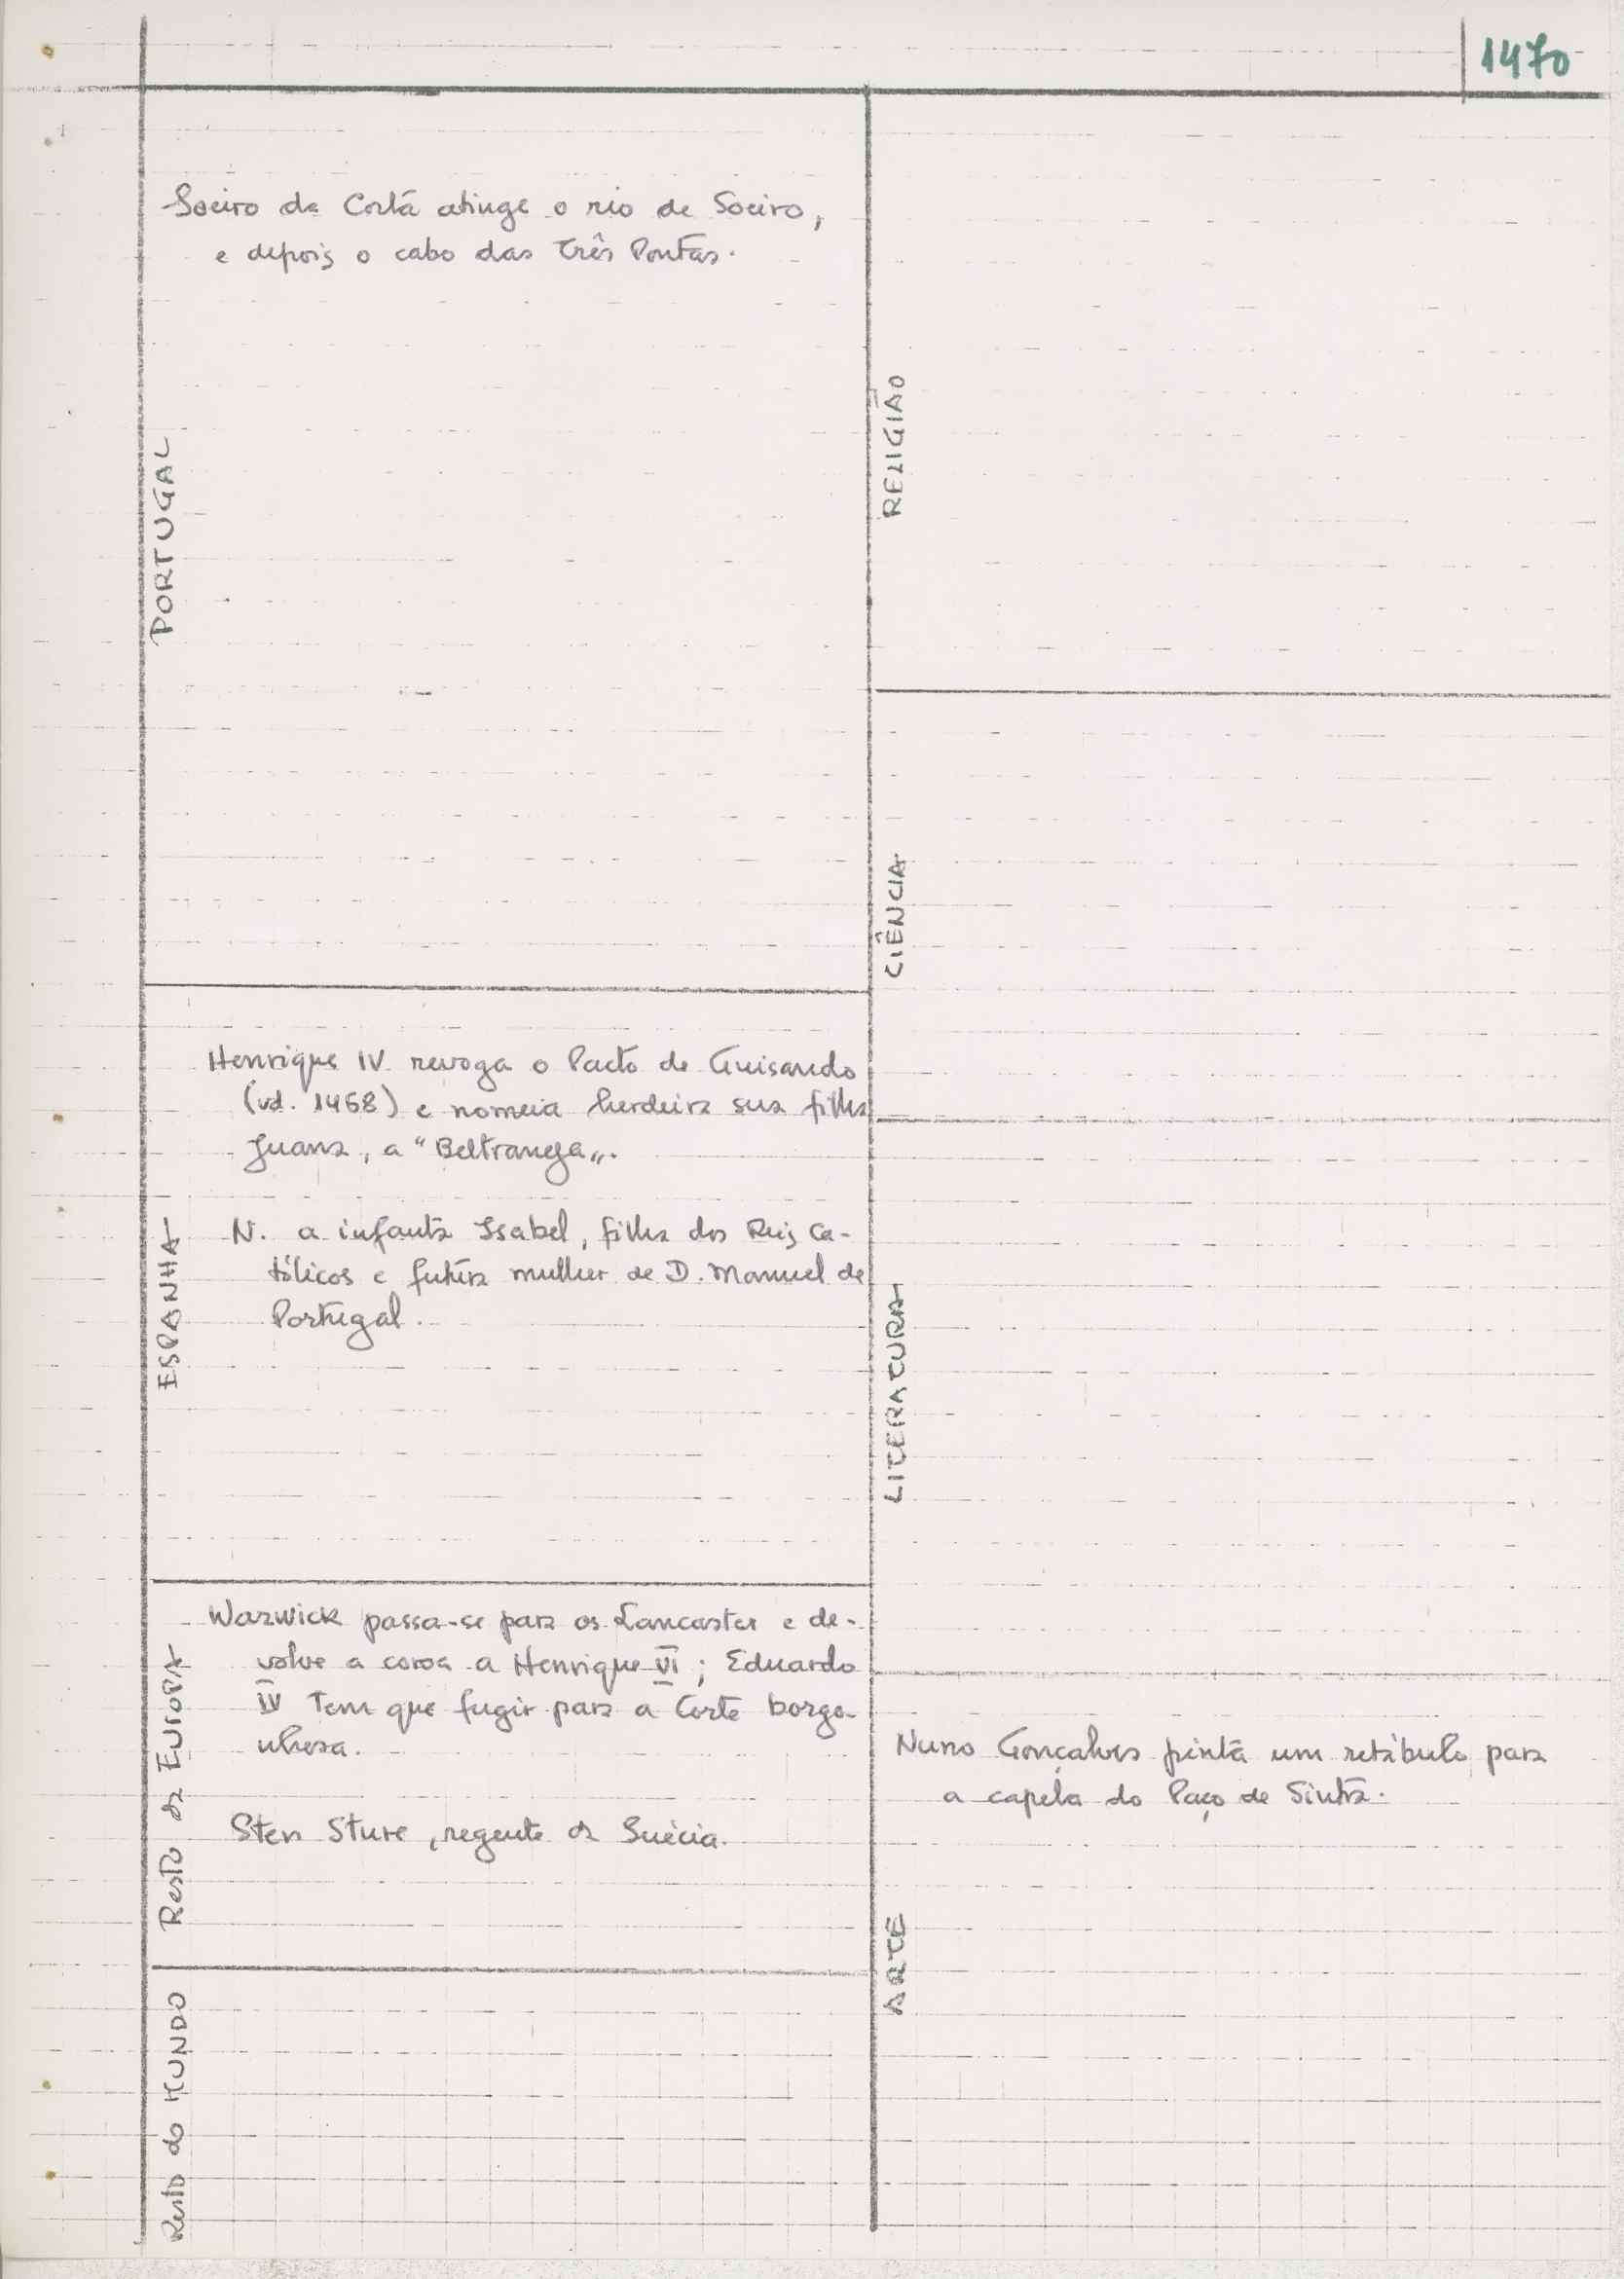 1470
PORTUGAL
Soeiro da Costa atinge o rio de Soeiro,
e depois o cabo das Três Pontas.
ESPANHA
Henrique IV revoga o Pacto de Guisando
(vd. 1468) e nomeia herdeira sua filha
Juana, a "Beltraneja„.
N. a infanta Isabel, filha dos Reis Ca-
tólicos e futura mulher de D. Manuel de
Portugal.
Resto da EUROPA
Warwick passa-se para os Lancaster e de-
volve a coroa a Henrique VI; Eduardo
IV tem que fugir para a Corte borgo-
nhesa.
Sten Sture, regente da Suécia.
Resto do MUNDO
RELIGIÃO
CIÊNCIA
LITERATURA
ARTE
Nuno Gonçalves pinta um retábulo para
a capela do Paço de Sintra.